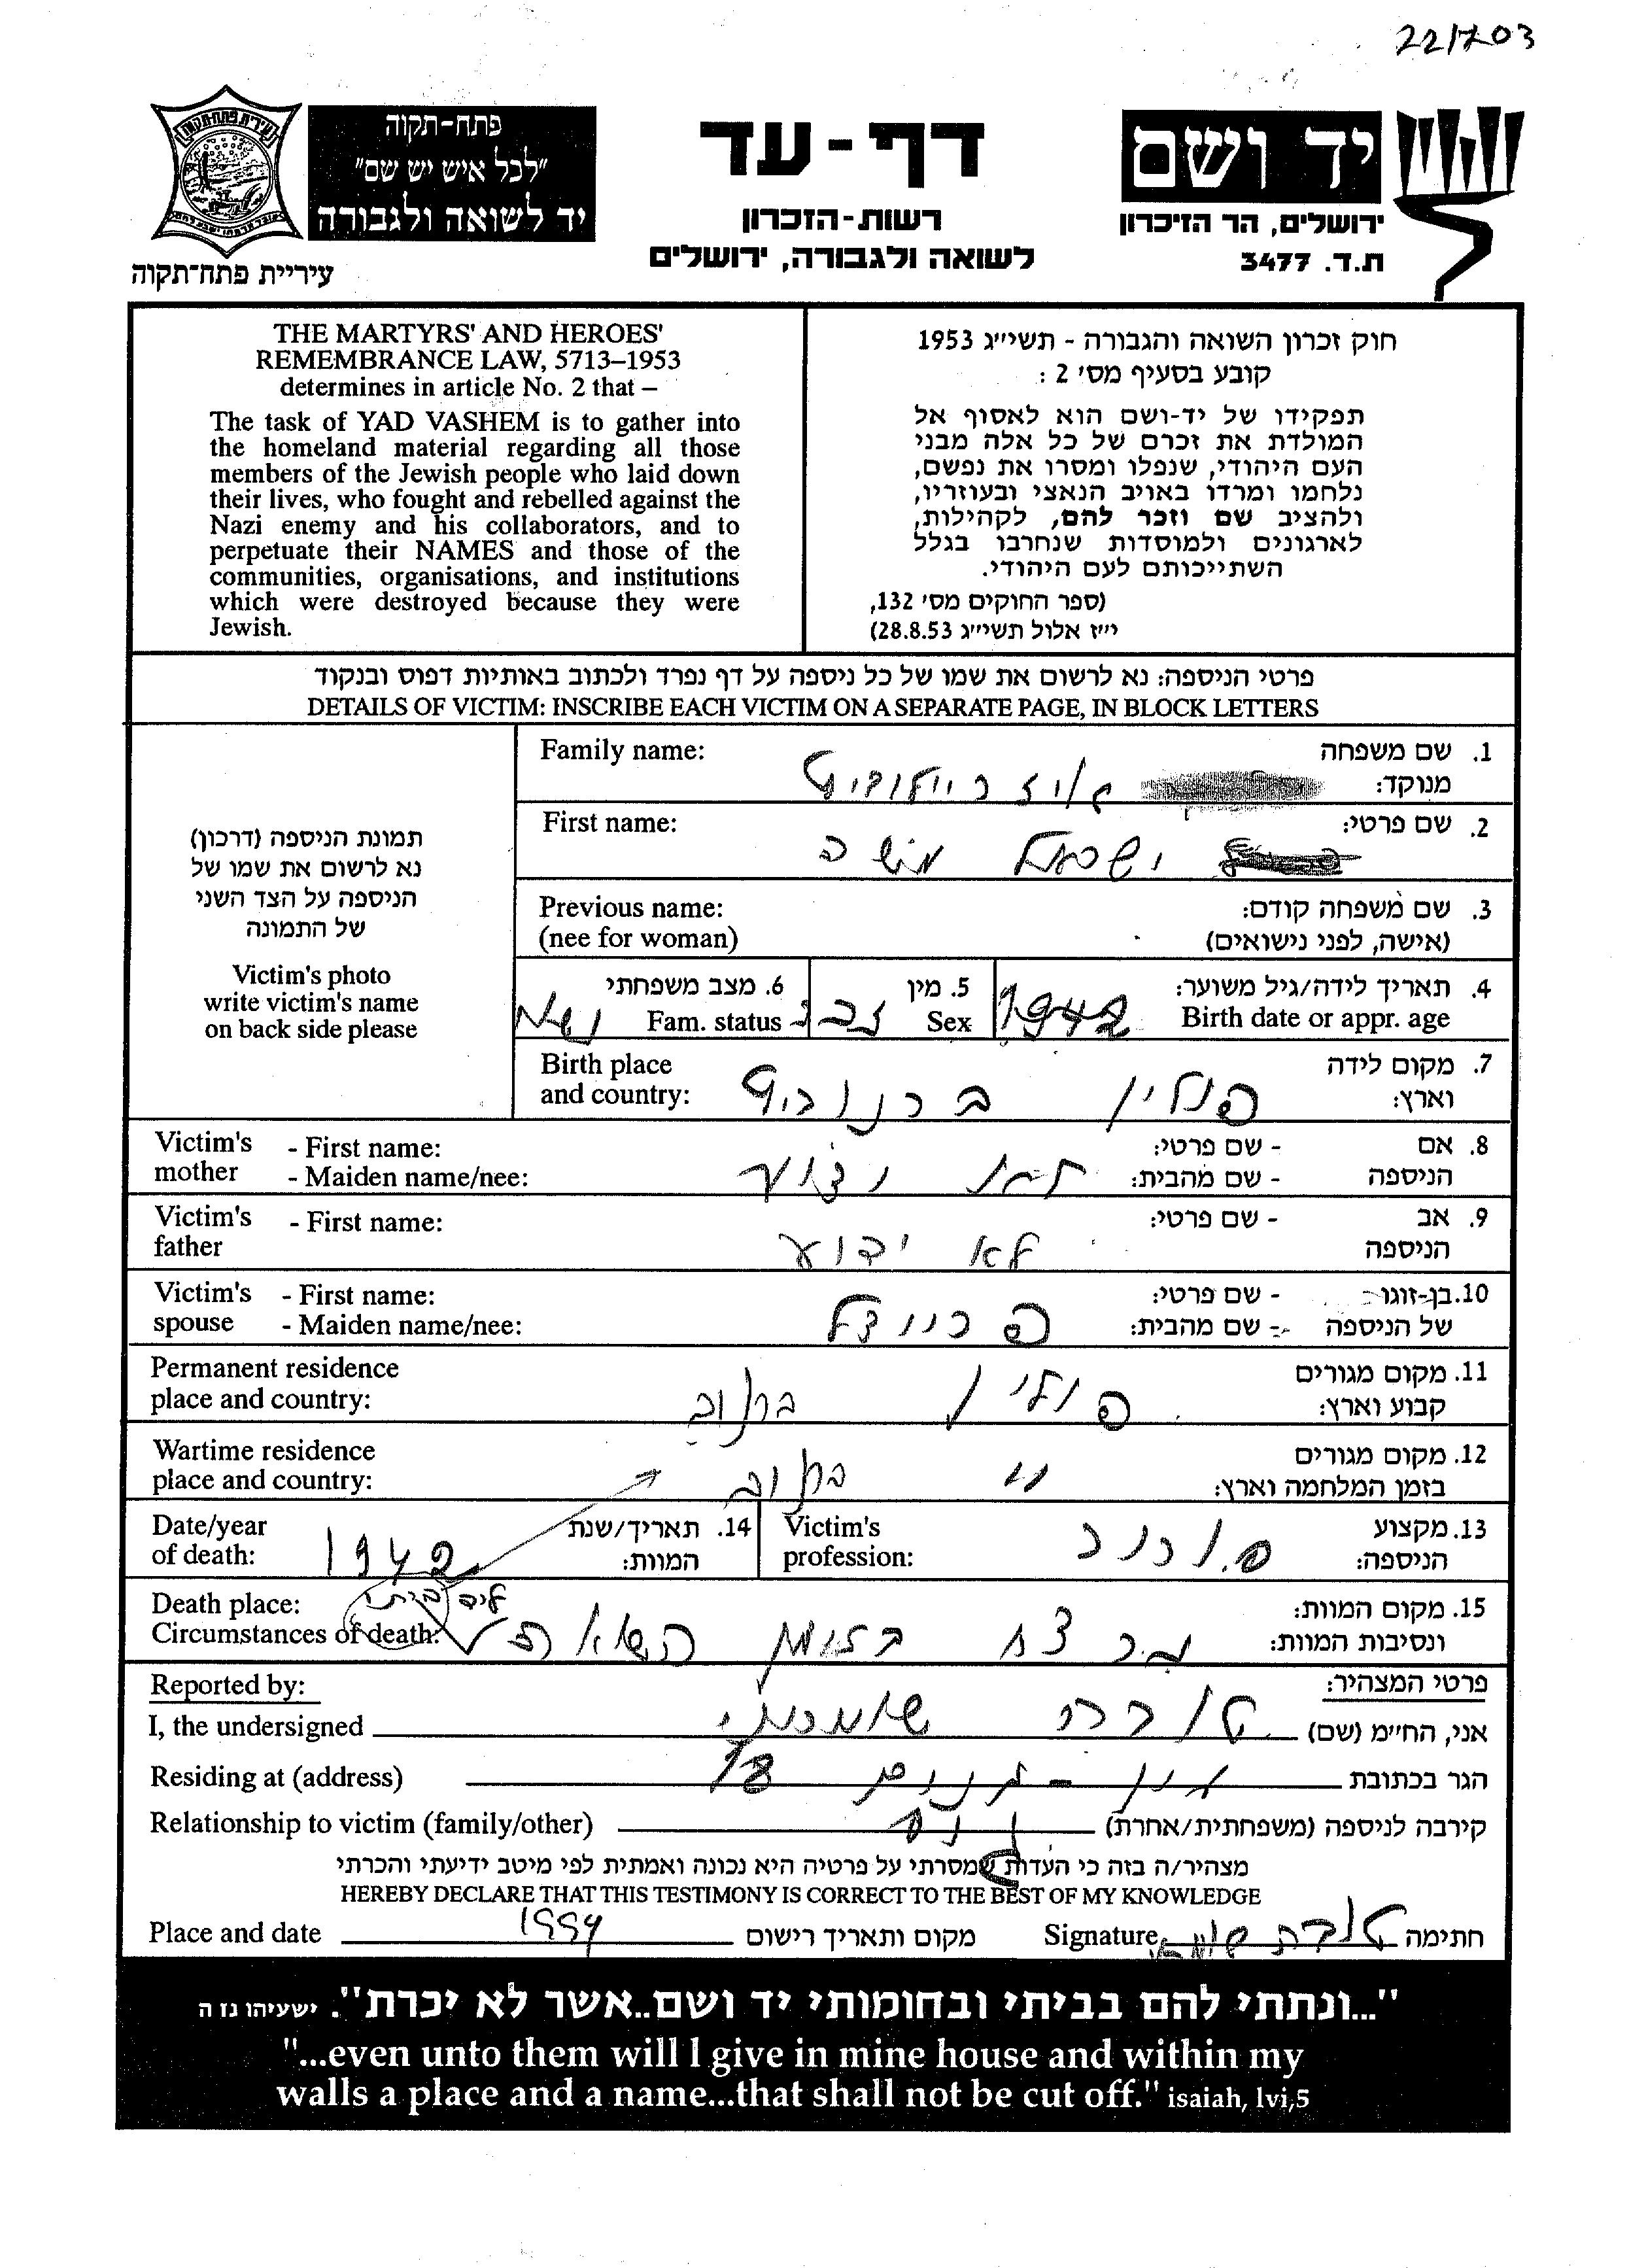 22/703
פתח-תקוה
"לכל איש יש שם"
יד לשואה ולגבורה
עיריית פתח-תקוה
דף - עד
רשות-הזכרון
לשואה ולגבורה, ירושלים
יד ושם
ירושלים, הר הזיכרון
ת.ד. 3477
THE MARTYRS' AND HEROES'
REMEMBRANCE LAW, 5713–1953
determines in article No. 2 that –
The task of YAD VASHEM is to gather into
the homeland material regarding all those
members of the Jewish people who laid down
their lives, who fought and rebelled against the
Nazi enemy and his collaborators, and to
perpetuate their NAMES and those of the
communities, organisations, and institutions
which were destroyed because they were
Jewish.
חוק זכרון השואה והגבורה - תשי״ג 1953
קובע בסעיף מס׳ 2 :
תפקידו של יד-ושם הוא לאסוף אל
המולדת את זכרם של כל אלה מבני
העם היהודי, שנפלו ומסרו את נפשם,
נלחמו ומרדו באויב הנאצי ובעוזריו,
ולהציב שם וזכר להם, לקהילות,
לארגונים ולמוסדות שנחרבו בגלל
השתייכותם לעם היהודי.
(ספר החוקים מס׳ 132,
י״ז אלול תשי״ג 28.8.53)
פרטי הניספה: נא לרשום את שמו של כל ניספה על דף נפרד ולכתוב באותיות דפוס ובנקוד
DETAILS OF VICTIM: INSCRIBE EACH VICTIM ON A SEPARATE PAGE, IN BLOCK LETTERS
תמונת הניספה (דרכון)
נא לרשום את שמו של
הניספה על הצד השני
של התמונה
Victim's photo
write victim's name
on back side please
Family name:
1. שם משפחה
מנוקד:
First name: ישראל משה
2. שם פרטי:
Previous name:
(nee for woman)
3. שם משפחה קודם:
(אישה, לפני נישואים)
4. תאריך לידה/גיל משוער:
Birth date or appr. age 1942
5. מין
Sex זכר
6. מצב משפחתי
Fam. status נשוי
Birth place
and country: פולין
7. מקום לידה
וארץ:
Victim's mother - First name:
- Maiden name/nee: לא ידוע
8. אם הניספה - שם פרטי:
- שם מהבית:
Victim's father - First name: לא ידוע
9. אב הניספה - שם פרטי:
Victim's spouse - First name:
- Maiden name/nee: פריידל
10. בן-זוגו של הניספה - שם פרטי:
- שם מהבית:
Permanent residence
place and country: פולין
11. מקום מגורים
קבוע וארץ:
Wartime residence
place and country: "
12. מקום מגורים
בזמן המלחמה וארץ:
Date/year
of death: 1942
14. תאריך/שנת
המוות:
Victim's
profession:
13. מקצוע
הניספה:
Death place:
Circumstances of death: נרצח בזמן השואה
ליד ביתו
15. מקום המוות:
ונסיבות המוות:
Reported by:
פרטי המצהיר:
I, the undersigned
אני, החי״מ (שם)
Residing at (address) 18
הגר בכתובת
Relationship to victim (family/other)
קירבה לניספה (משפחתית/אחרת)
מצהיר/ה בזה כי העדות שמסרתי על פרטיה היא נכונה ואמתית לפי מיטב ידיעתי והכרתי
HEREBY DECLARE THAT THIS TESTIMONY IS CORRECT TO THE BEST OF MY KNOWLEDGE
Place and date 1994 מקום ותאריך רישום
Signature חתימה
"...ונתתי להם בביתי ובחומותי יד ושם..אשר לא יכרת". ישעיהו נז ה
"...even unto them will I give in mine house and within my
walls a place and a name...that shall not be cut off." isaiah, lvi,5